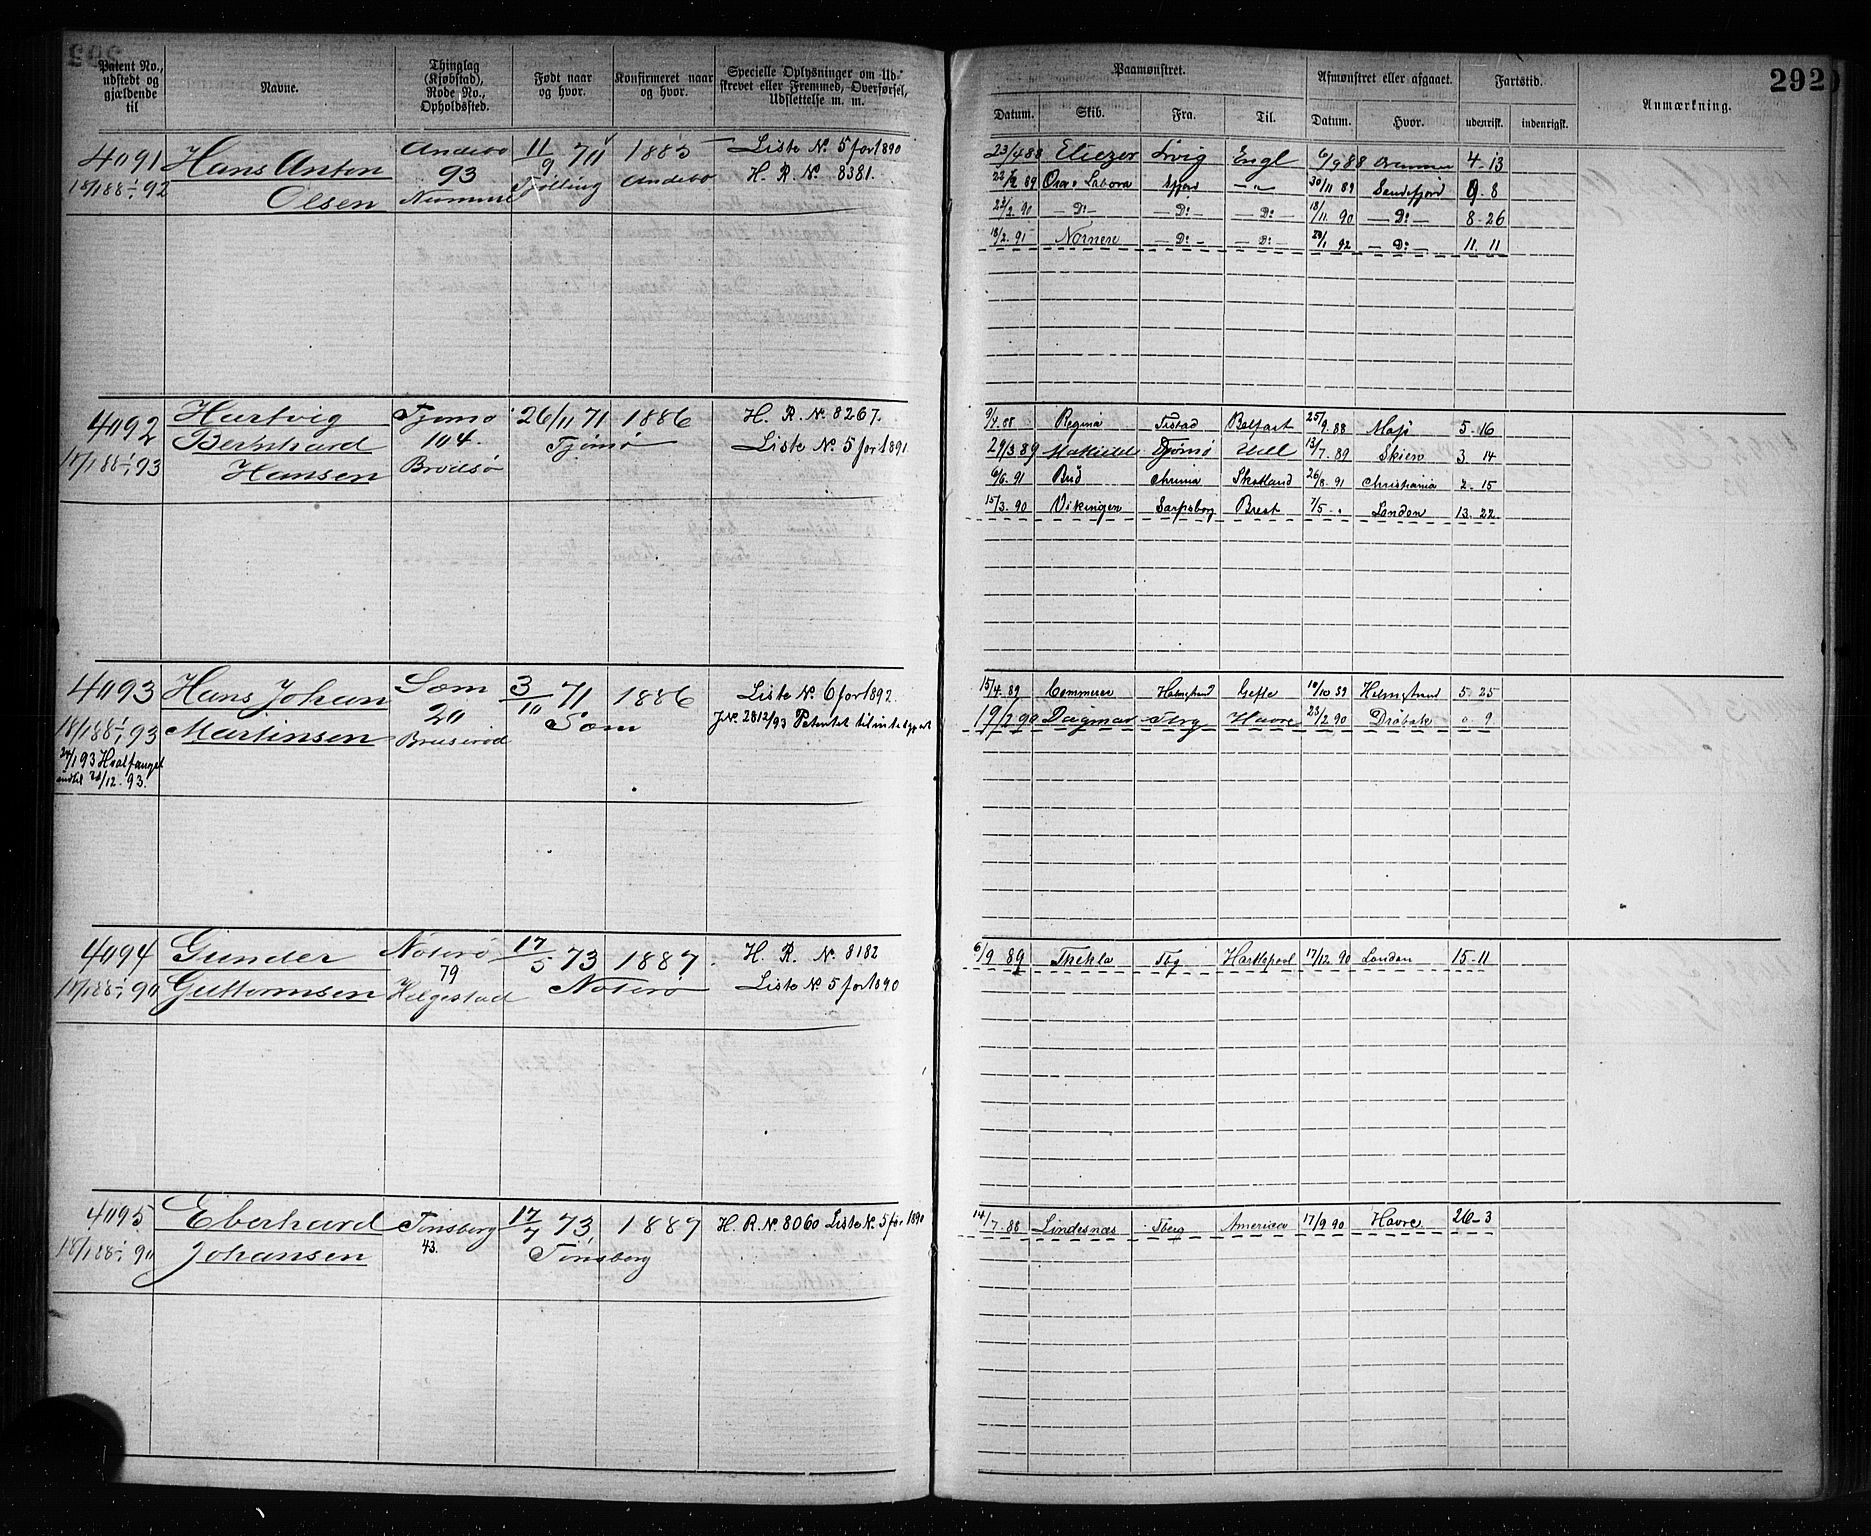 292
Patent No., udstedt og gjældende til
Navne.
Thinglag (Kjøbstad), Rode No., Opholdssted.
Født naar og hvor.
Konfirmeret naar og hvor.
Specielle Oplysninger om Udstrevet eller Fremmed, Overførsel, Udslettelse m. m.
Paamønstret.
Afmønstret eller afgaaet.
Fartstid.
Anmærkning.
Datum. Skib. Fra. Til. Datum. Hvor. udenrigsk. indenrigsk.
4091 Hans Anton Andebo 11/9 70 1885 Liste N. 5 for 1890
18/1 88-1/1 92 Olsen 93 Tjølling Andebo H. R. N. 8381.
23/4 88 Eliezer Lrvig Engl 6/9 88 4-13
22/2 89 Ora & Labora Sfjord -"- 30/11 89 Sandefjord 9-8
22/2 90 -D:- -D:- -D:- 18/11 90 -D:- 8-26
18/2 91 Nornen -D:- -D:- 29/1 92 -D:- 11.11
4092 Hartvig Tjømø 26/11 71 1886 H. R. N. 8267.
18/1 88-1/1 93 Bernhard 104. Tjømø Liste N. 5 for 1891
Hansen
9/4 88 Regina Fstad Belfast 25/9 88 5-16
29/3 89 Mathilde Tjømø Hull 13/7 89 Skien 3 14
6/6 91 Bud Chrnia Skotland 26/8 91 Christiania 2-15
15/3 90 Vikingen Sarpsborg Brest 7/5 - " London 13-22
4093 Hans Johan Sæm 3/10 71 1886 Liste N. 6 for 1892.
18/1 88-1/1 93 Martinsen 20 Sæm J.N. 2812/93
24/1 93 Hvalfanget Bruserød
indtil 28/12-93.
15/4 89 Commerce Holmstrand Gefle 19/10 89 Holmstrand 5 25
19/2 90 Dagmar Tbrg Havre 23/2 90 Drøbak 0 9
4094 Gunder Nøterø 17/5 73 1887 H. R. N. 8182
18/1 88-1/1 90 Guttormsen 79 Nøterø Liste N. 5 for 1890
Helgestad
6/9 89 Thekla Tbg Hartlepool 17/12 90 London 15-11
4095 Eberhard Tønsberg 17/7 73 1887 H. R. N. 8060 Liste N. 5 for 1890
18/1 88-1/1 90 Johansen 43. Tønsberg
14/7 88 Lindesnæs Tberg America 17/9 90 Havre 26-3